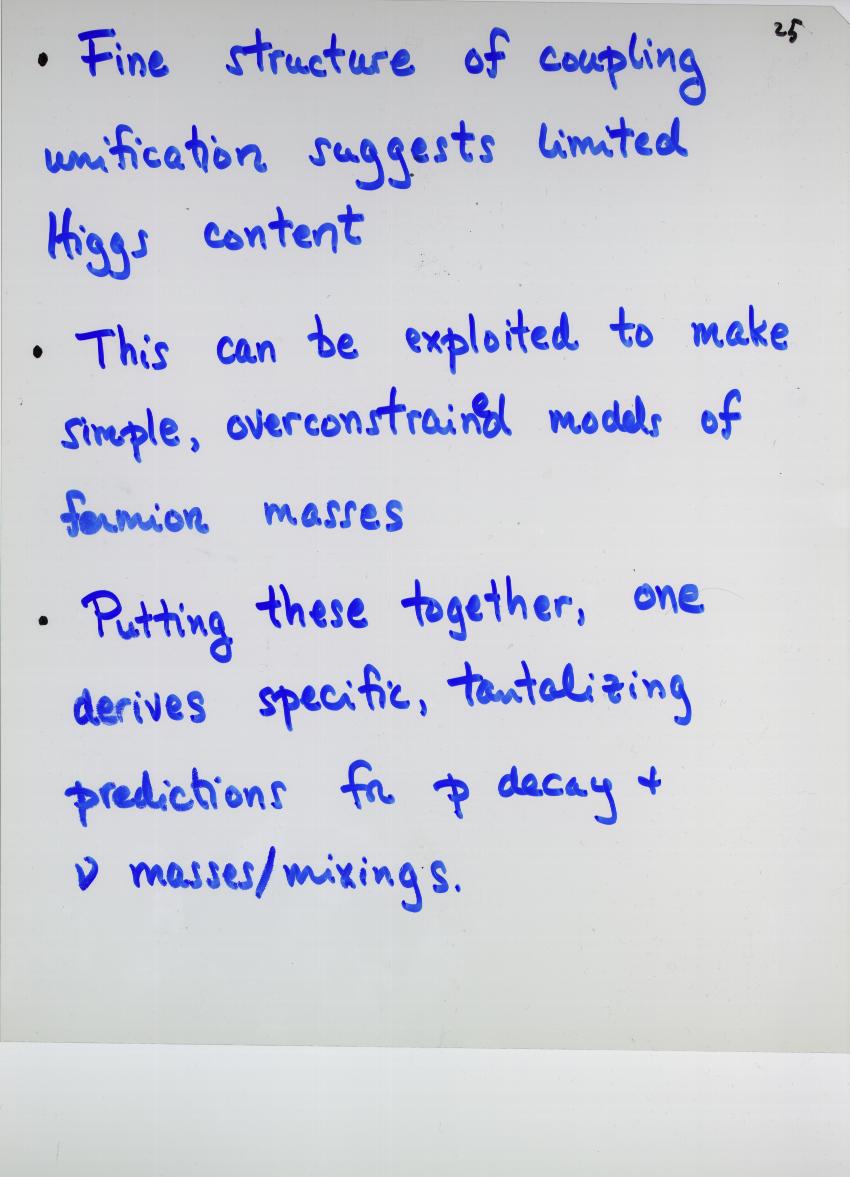 25
• Fine structure of coupling
unification suggests limited
Higgs content
• This can be exploited to make
simple, overconstrained models of
fermion masses
• Putting these together, one
derives specific, tantalizing
predictions for p decay +
ν masses/mixings.